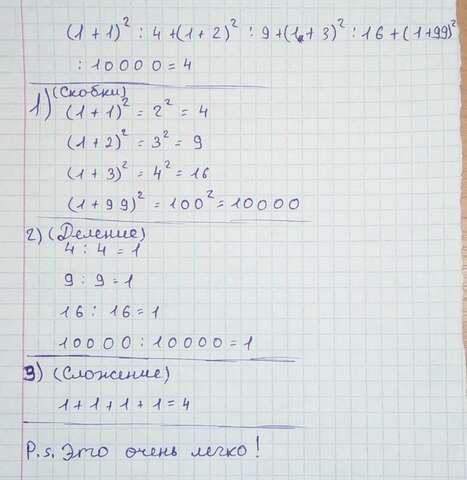 (1 + 1)² : 4 + (1 + 2)² : 9 + (1 + 3)² : 16 + (1 + 99)²
: 10000 = 4
1) (Скобки)
(1 + 1)² = 2² = 4
(1 + 2)² = 3² = 9
(1 + 3)² = 4² = 16
(1 + 99)² = 100² = 10000
2) (Деление)
4 : 4 = 1
9 : 9 = 1
16 : 16 = 1
10000 : 10000 = 1
3) (Сложение)
1 + 1 + 1 + 1 = 4
P.s. Это очень легко!